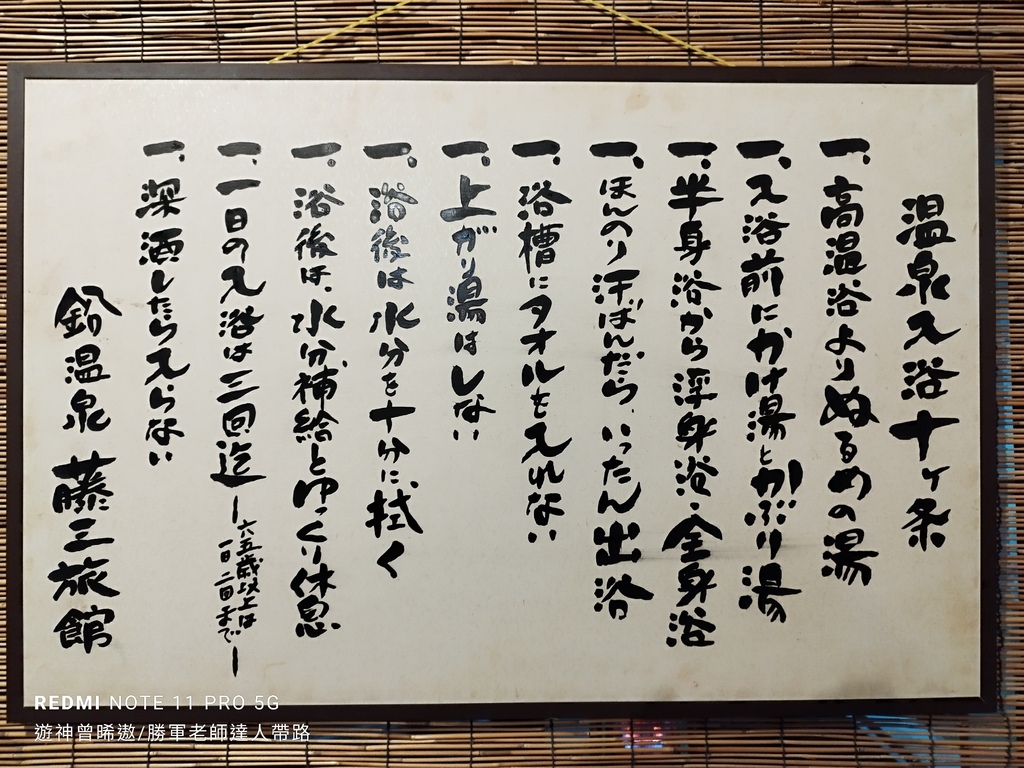 温泉入浴十ヶ条
一、高温浴よりぬるめの湯
一、入浴前にかけ湯とかぶり湯
一、半身浴から浮身浴・全身浴
一、ほんのり汗ばんだら、いったん出浴
一、浴槽にタオルを入れない
一、上がり湯はしない
一、浴後は水分を十分に拭く
一、浴後は、水分補給とゆっくり休息
一、一日の入浴は三回迄
―六五歳以上は一日二回まで―
一、深酒したら入らない
鉛温泉 藤三旅館
REDMI NOTE 11 PRO 5G
遊神曾晞遨/勝軍老師達人帶路